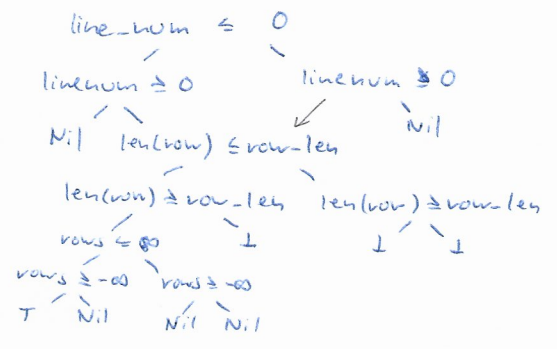 line_num ≤ 0
linenum ≥ 0 linenum ≥ 0
Nil len(row) ≤ row_len Nil
len(row) ≥ row_len len(row) ≥ row_len
rows ≤ ∞ ⊥ ⊥ ⊥
rows ≥ -∞ rows ≥ -∞
T Nil Nil Nil